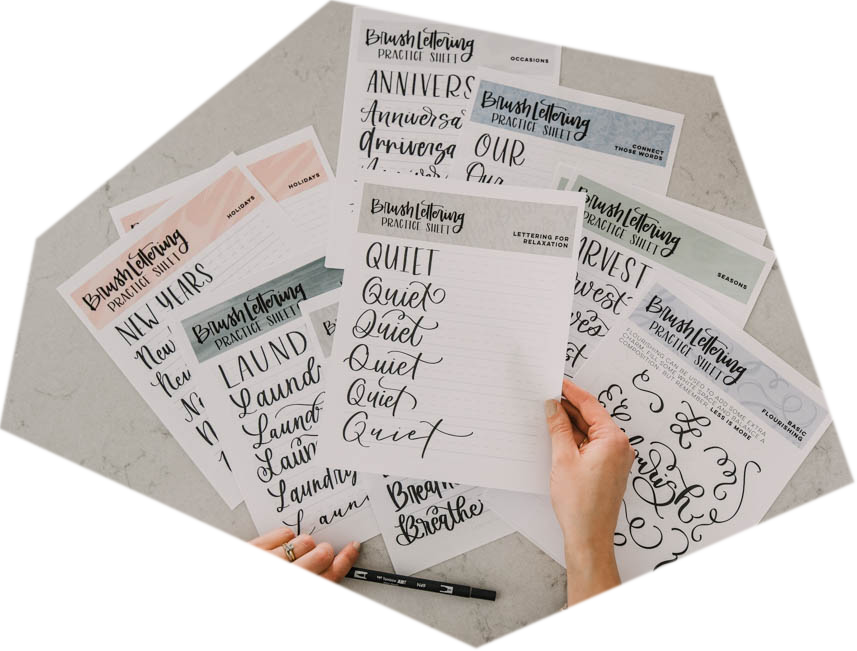 Brush Lettering
PRACTICE SHEET
OCCASIONS
ANNIVERS
Anniversa
Anniversa
Brush Lettering
PRACTICE SHEET
CONNECT
THOSE WORDS
OUR
Our
HOLIDAYS
Brush Lettering
PRACTICE SHEET
HOLIDAYS
NEW YEARS
New
New
Brush Lettering
PRACTICE SHEET
LAUND
Laund
Laund
Laun
Laundry
Laun
Brush Lettering
PRACTICE SHEET
LETTERING FOR
RELAXATION
QUIET
Quiet
Quiet
Quiet
Quiet
Quiet
Breath
Breathe
Brush Lettering
PRACTICE SHEET
SEASONS
ARVEST
rvest
Brush Lettering
PRACTICE SHEET
BASIC
FLOURISHING
FLOURISHING CAN BE USED TO ADD SOME EXTRA
CHARM, FILL SOME WHITE SPACE AND BALANCE A
COMPOSITION. BUT REMEMBER, LESS IS MORE
flourish